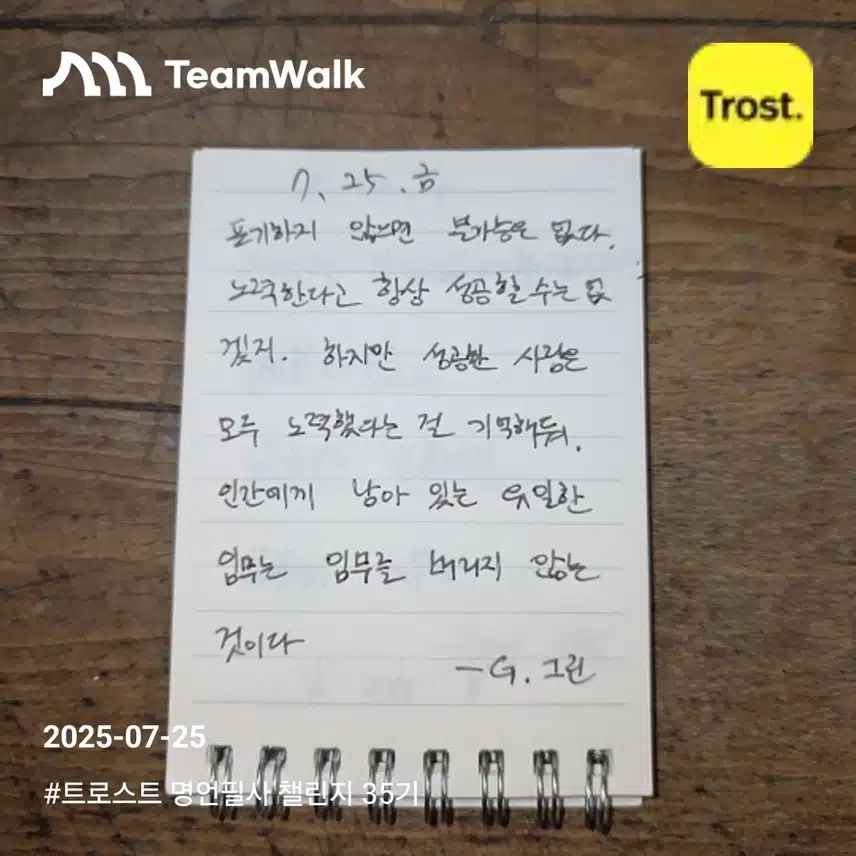 TeamWalk
Trost.
7. 25. 금
포기하지 않으면 불가능은 없다.
노력한다고 항상 성공할 수는 없
겠지. 하지만 성공한 사람은
모두 노력했다는 걸 기억해둬.
인간에게 남아 있는 유일한
임무는 임무를 버리지 않는
것이다
-G. 그린
2025-07-25
#트로스트 명언필사 챌린지 35기